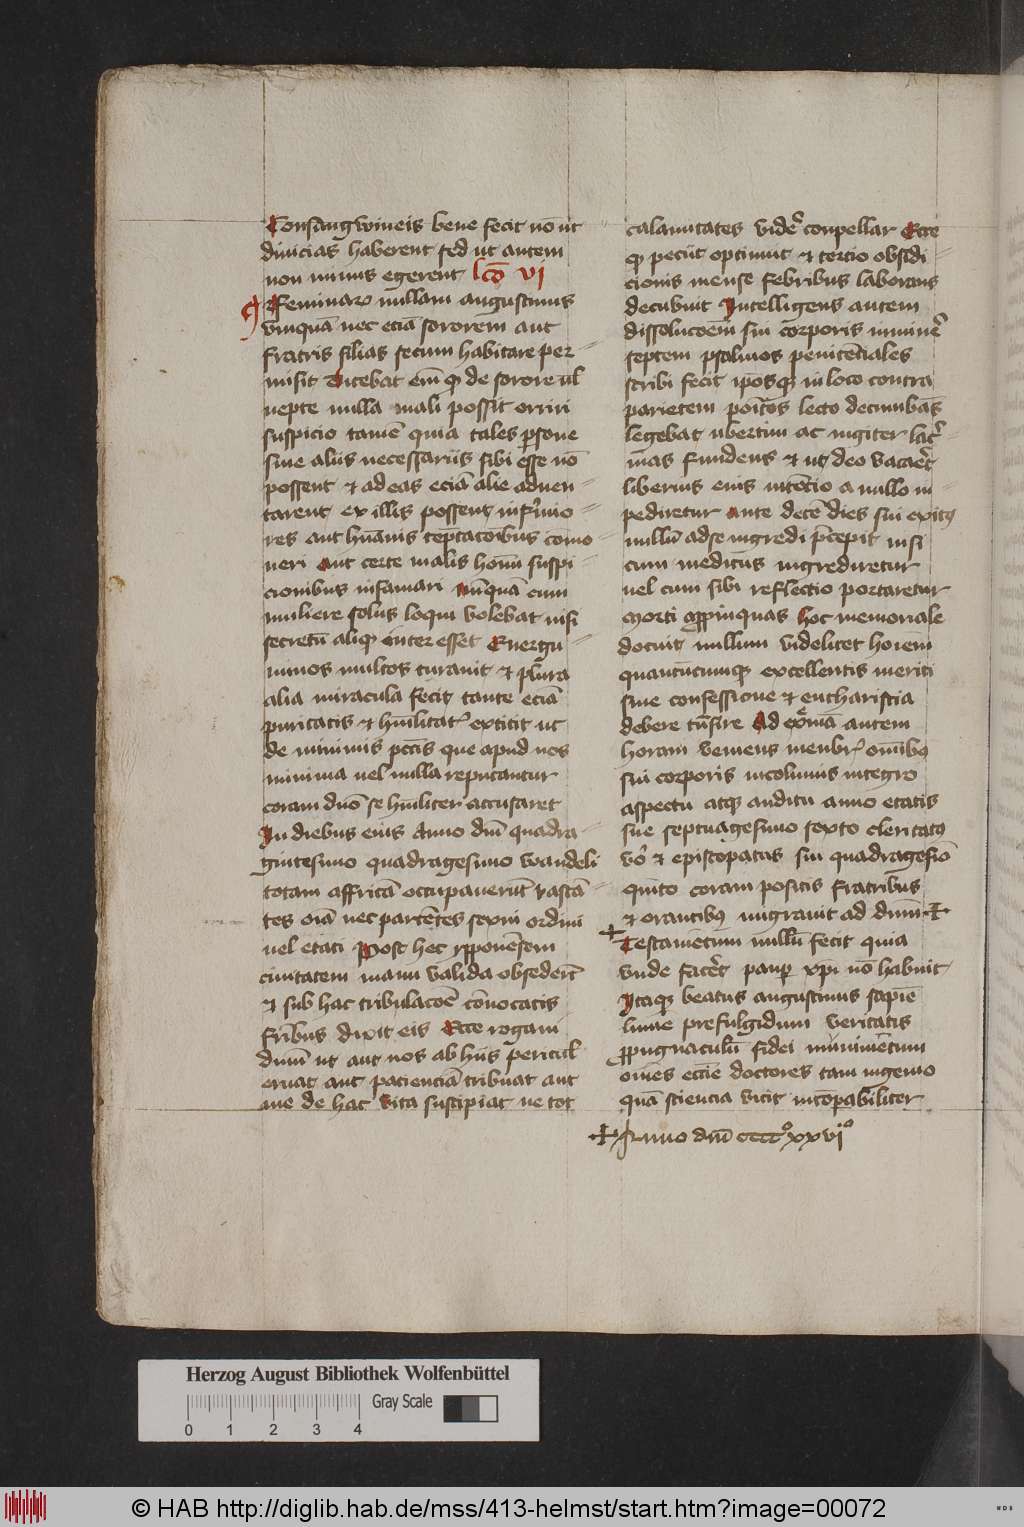 Consangwineis bene fecit nō ut
diuicias haberent sed ut autem
non minus egerent lc̄o vi
Feminarꝝ nullam augustinus
vnquā nec eciā sororem aut
fratris filias secum habitare per-
misit Dicebat em̄ qꝫ de sorore ul
nepte nulla mali possit orriri
suspicio tamē quia tales ꝑsone
sine aliis necessariis sibi esse nō
possent et ad eas eciā alie aduen-
tarent ex illis possent infirmio-
res aut hūanis tēptacōibus como-
ueri aut certe malis hom̄ suspi-
cionibus infamari Nūquā cum
muliere solus loqui volebat nisi
secretū aliqꝫ interesset Energu-
minos multos curauit et plura
alia miracula fecit tante eciā
puritatis et hūilitatꝭ extitit ut
de minimis pctīs que apud nos
minima uel nulla reputantur
coram dn̄o se hūiliter accusaret
In diebus eius Anno dnī quadra-
gintesimo quadragesimo wandeli
totam affricā occupauerūt vastā-
tes oīa nec parcētes sexui ordini
uel etati Post hec ypponēsem
ciuitatem manu valida obsederūt
et sub hac tribulacōe cōuocatis
fribus dixit eis Ecce rogaui
dnm̄ ut aut nos ab hiis pericul
eruat aut pacienciā tribuat aut
me de hac vita suscipiat ne tot
calamitates vidēe conpellar Ecce
qꝫ peciit optinuit et tercio obsidi-
cionis mense febribus laborans
decubuit Intelligens autem
dissolucoēm sui corporis iminē
septem psalmos penitēciales
scribi fecit ip̄osqꝫ in loco contra
parietem poītos lecto decumbās
legebat ubertim ac iugiter lacri-
mas fundens et ut deo vacaret
liberius eius intēcio a nullo in-
pediretur ante decē dies sui exitꝰ
nullū ad se ingredi p̄cepit nisi
cum medicus ingrediretur
uel cum sibi reflectio portaretur
Morti ꝓpinquas hoc memoriale
docuit nullum videlicet hoiēm
quantūcumqꝫ excellentis meriti
sine confessione et eucharistia
debere trāsire Ad extremā autem
horam veniens menbris omībꝰ
sui corporis incolumis integro
aspectu atqꝫ auditu anno etatis
sue septuagesimo sexto clericatꝰ
vo et episcopatus sui quadragesiō
quīto coram positis fratribus
et orantibꝰ migrauit ad dnm̄ ✢
✢ Testamētum nullū fecit quia
vnde facēt pauꝑ xpi nō habuit
Itaqꝫ beatus augustinus sapiē
lumine prefulgidum veritatis
ꝓpugnaculū fidei munimētum
omēs ecc̄ie doctores tam ingenio
quā sciencia vicit incōparabiliter
✢ Anno dnī ccccº xxviº
Herzog August Bibliothek Wolfenbüttel
Gray Scale
0 1 2 3 4
© HAB http://diglib.hab.de/mss/413-helmst/start.htm?image=00072